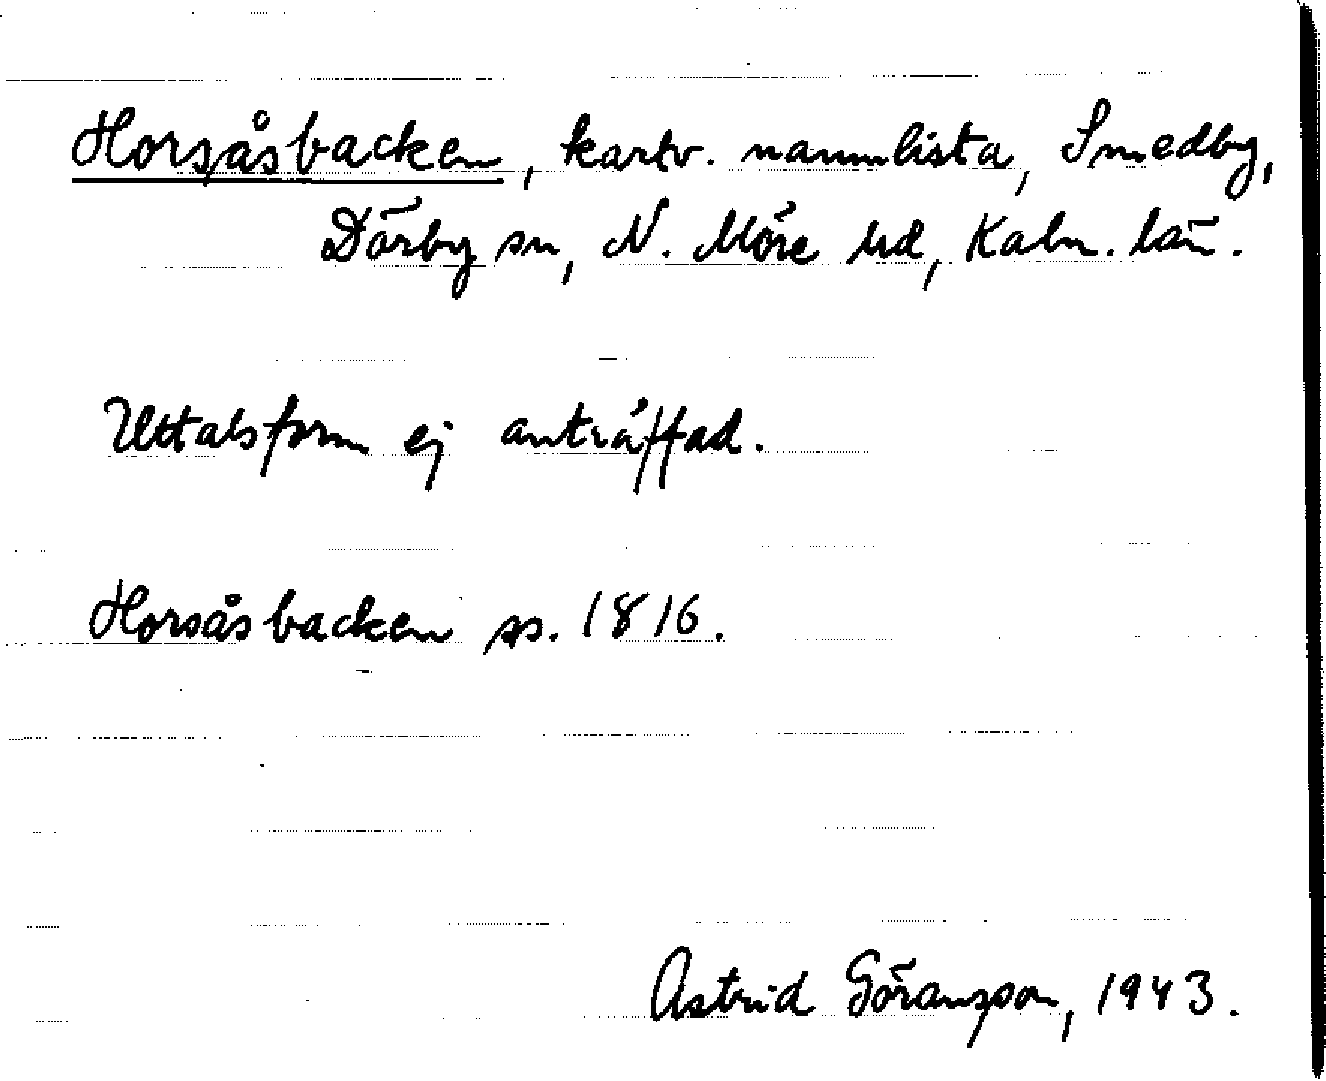 Horsåsbacken, kartv. namnlista, Smedby,
Dörby sn, N. Möre hd, Kalm. län.
Uttalsform ej anträffad.
Horsåsbacken ss. 1816.
Astrid Göransson, 1943.